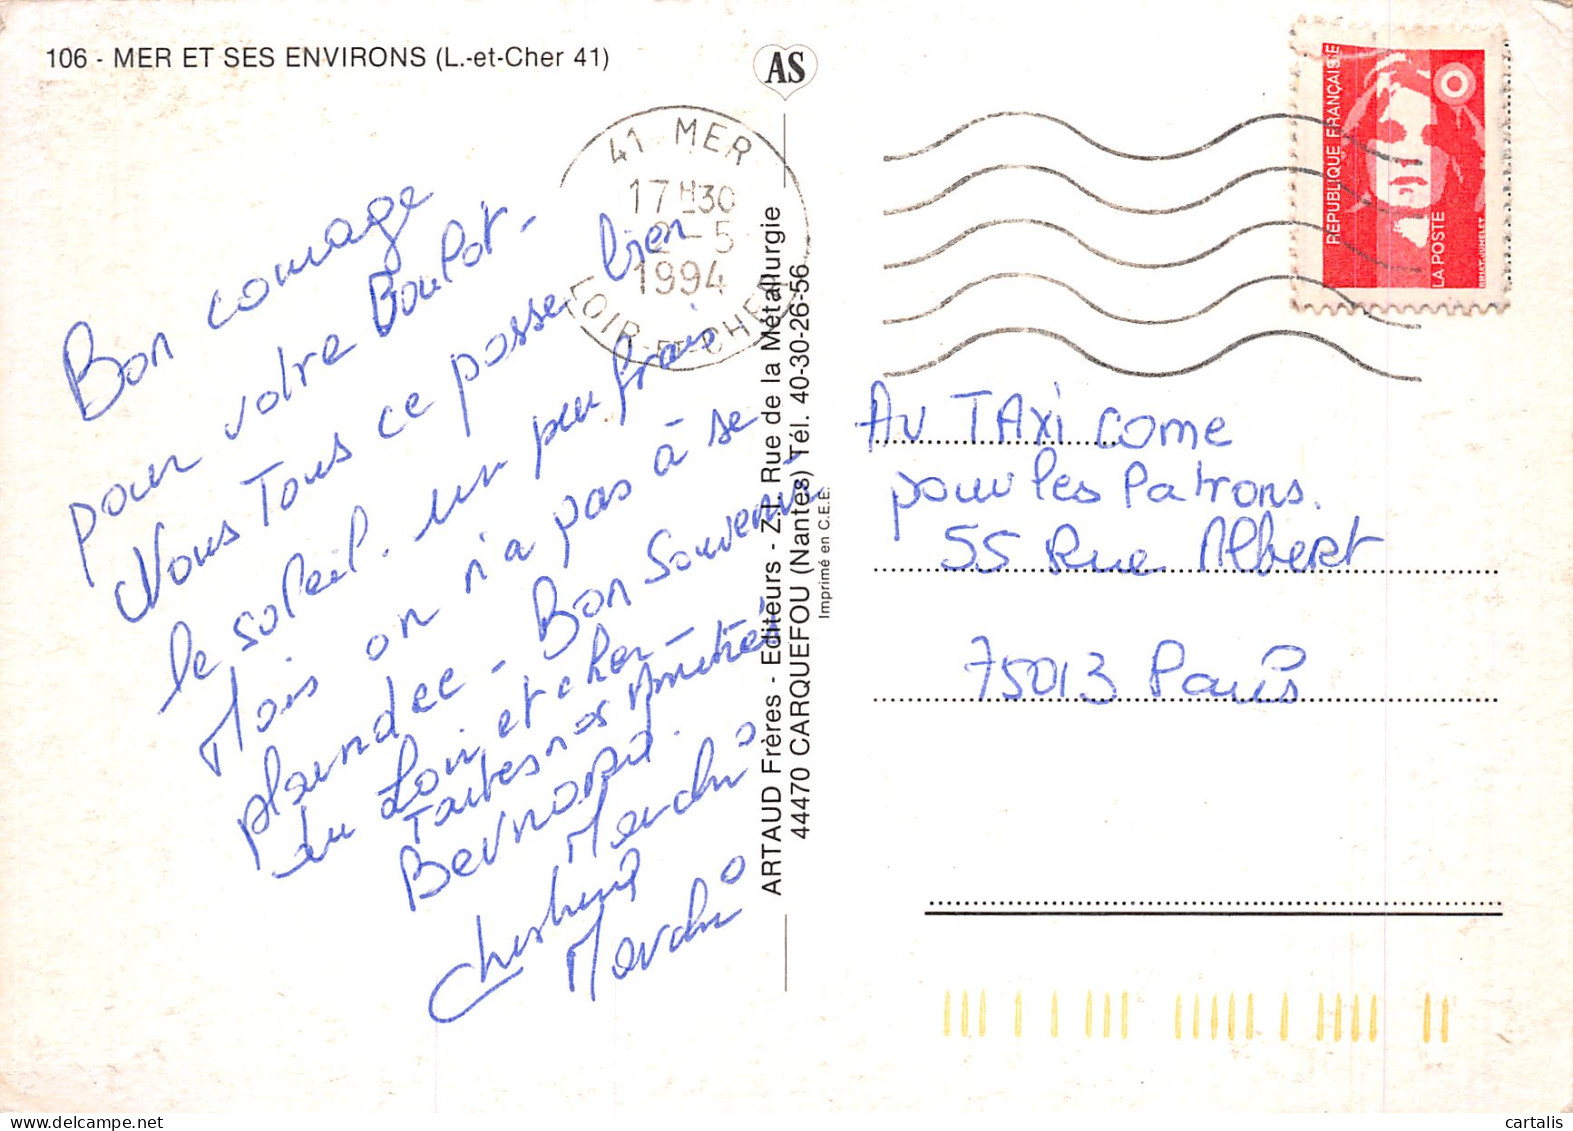 106 - MER ET SES ENVIRONS (L.-et-Cher 41)
AS
41 MER
17H30
2-5
1994
LOIR-ET-CHER
REPUBLIQUE FRANÇAISE
LA POSTE
Bon courage
pour votre Boulot -
Nous Tous ce passe bien
le soleil. un peu frais
Mais on n'a pas à se
plaindee - Bon Souvenir
du Loir et cher -
Taites nos Amitiés
Bernard.
Merchi
Christine
Merchi
ARTAUD Frères - Editeurs - Z.I. Rue de la Métallurgie
44470 CARQUEFOU (Nantes) Tél. 40-30-26-56
Imprimé en C.E.E.
AU TAXi come
pour les Patrons.
55 Rue Albert
75013 Paris
cartalis